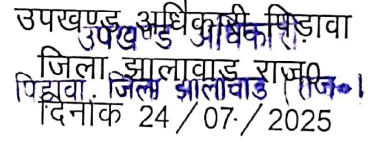 उपखण्ड अधिकारी पिडावा
उपखण्ड अधिकारी
जिला झालावाड राज०
पिडावा. जिला झालावाड (राज०)
दिनांक 24/07/2025